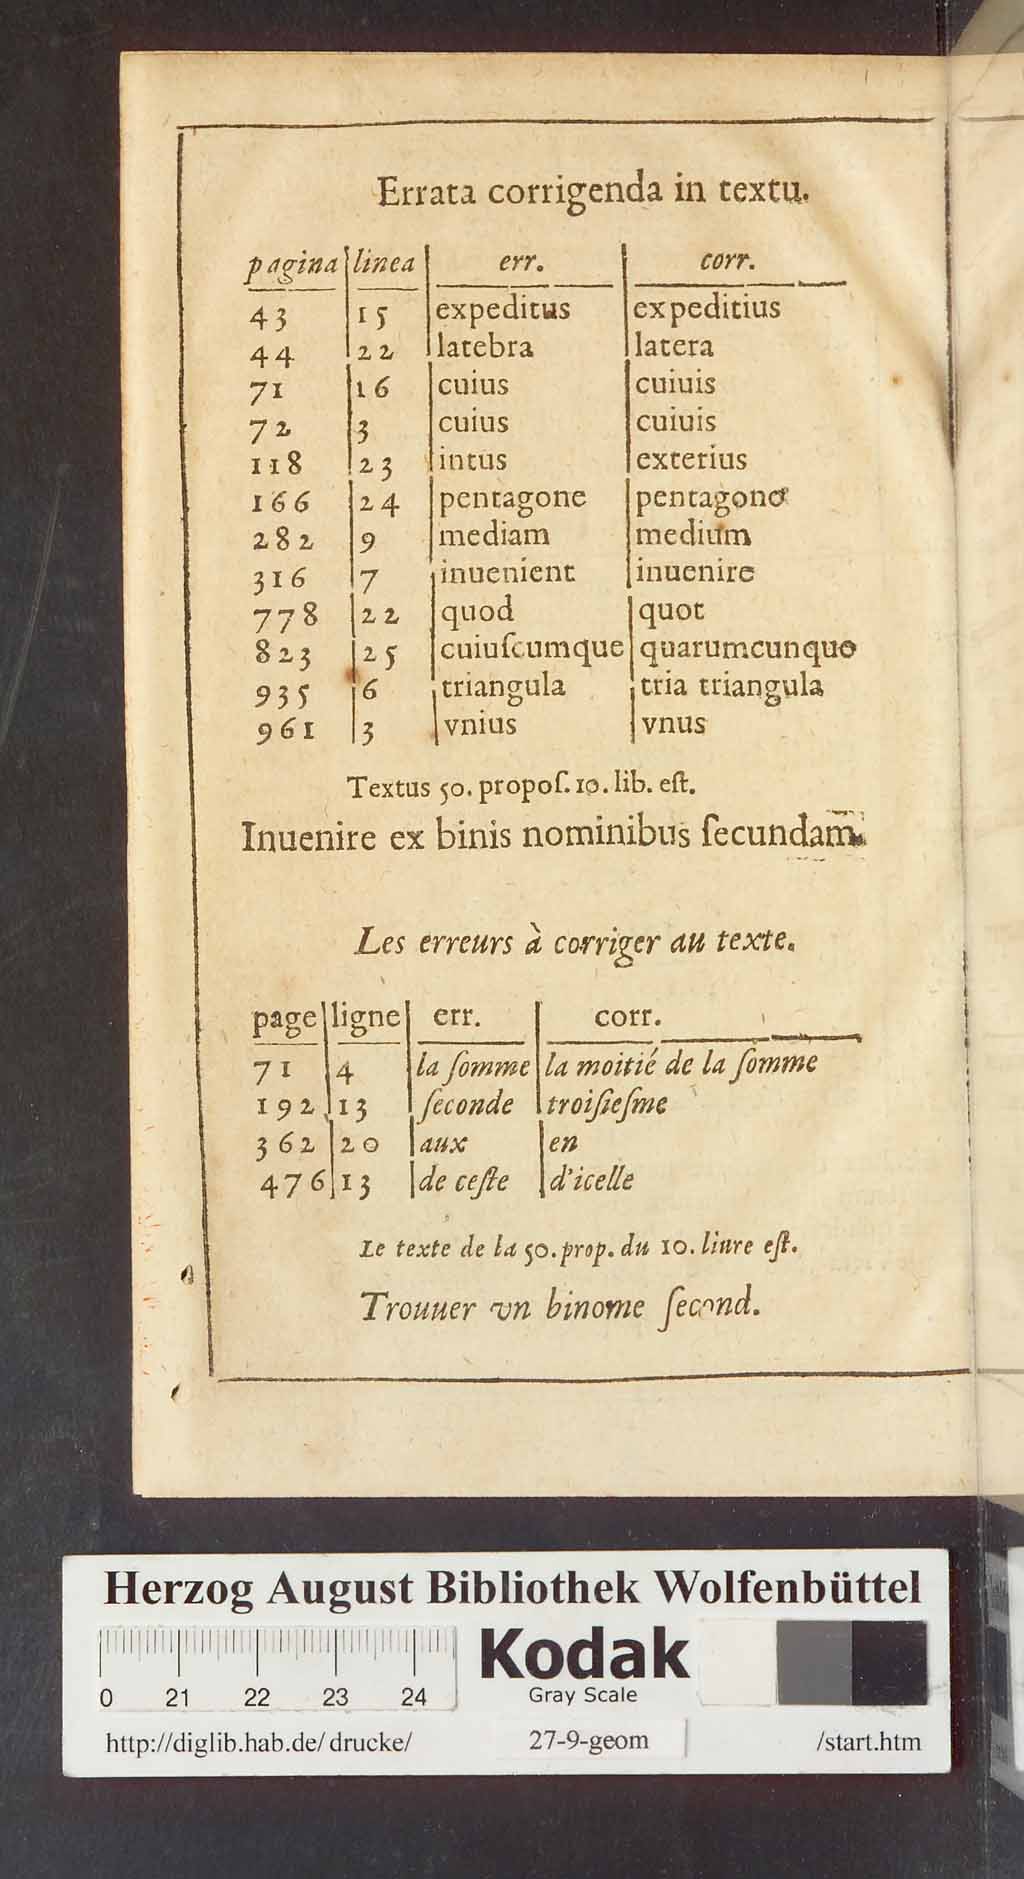 Errata corrigenda in textu.
pagina linea err. corr.
43 15 expeditus expeditius
44 22 latebra latera
71 16 cuius cuiuis
72 3 cuius cuiuis
118 23 intus exterius
166 24 pentagone pentagono
282 9 mediam medium
316 7 inuenient inuenire
778 22 quod quot
823 25 cuiuſcumque quarumcunque
935 6 triangula tria triangula
961 3 vnius vnus
Textus 50. propoſ. 10. lib. eſt.
Inuenire ex binis nominibus ſecundam.
Les erreurs à corriger au texte.
page ligne err. corr.
71 4 la ſomme la moitié de la ſomme
192 13 ſeconde troiſieſme
362 20 aux en
476 13 de ceſte d'icelle
Le texte de la 50. prop. du 10. liure eſt.
Trouuer vn binome ſecond.
Herzog August Bibliothek Wolfenbüttel
Kodak
Gray Scale
0 21 22 23 24
http://diglib.hab.de/drucke/ 27-9-geom /start.htm